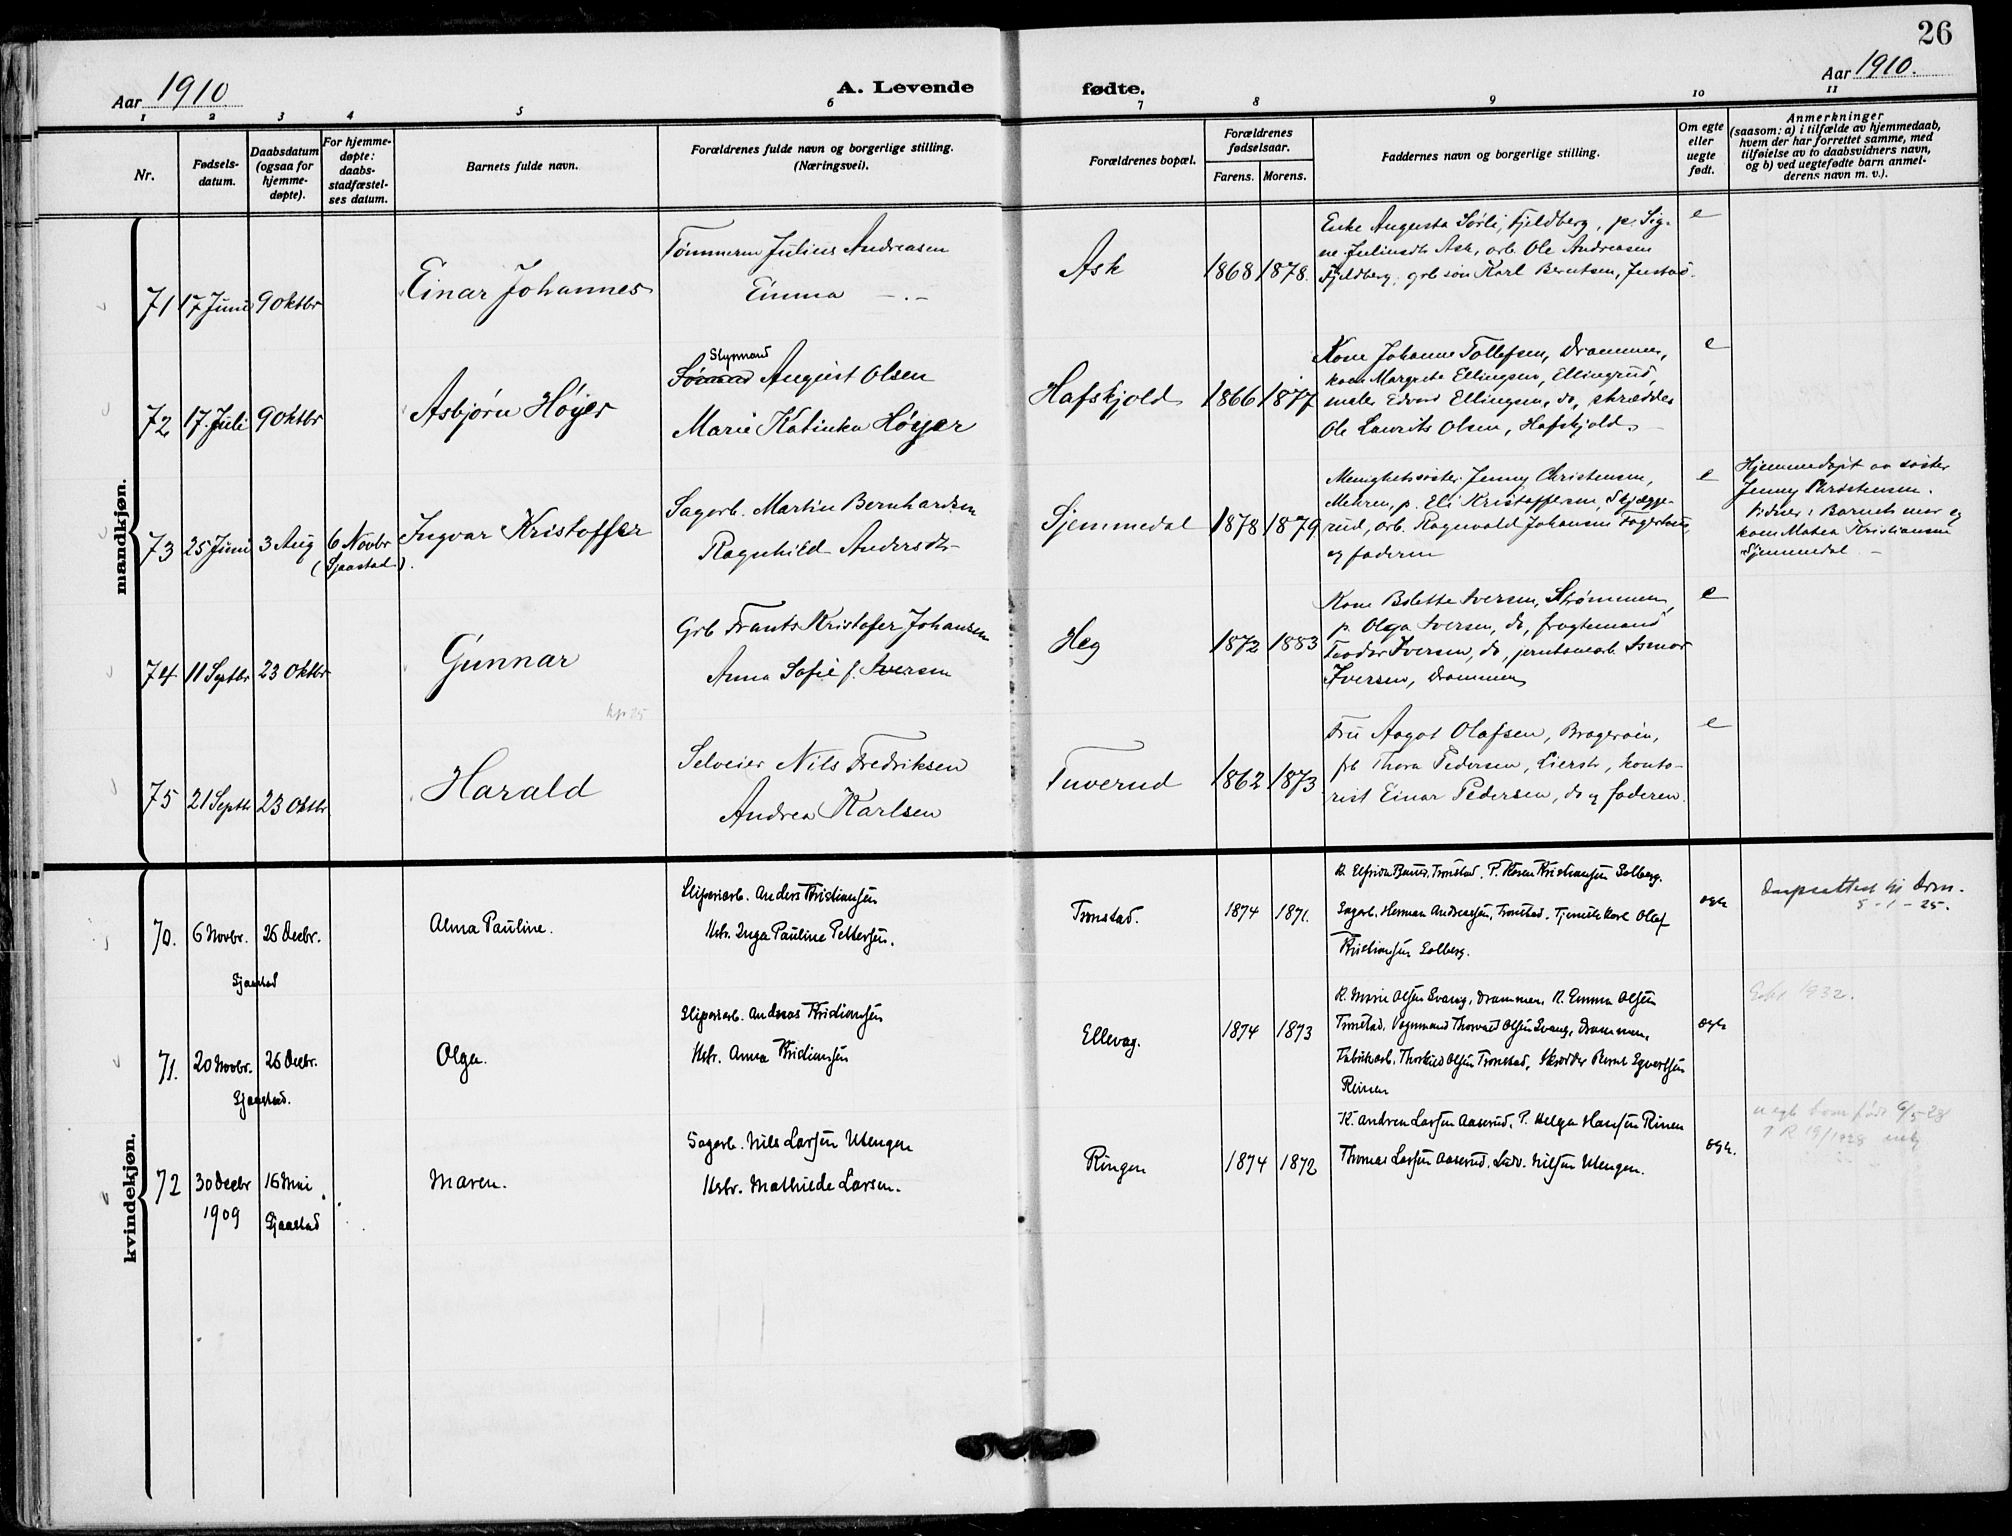 26
Aar 1910
A. Levende
fødte.
Aar 1910.
1 2 3 4 5 6 7 8 9 10 11
Nr.
Fødsels-
datum.
Daabsdatum
(ogsaa for
hjemme-
døpte).
For hjemme-
døpte:
daabs-
stadfæstel-
ses datum.
Barnets fulde navn.
Forældrenes fulde navn og borgerlige stilling.
(Næringsvei).
Forældrenes bopæl.
Forældrenes
fødselsaar.
Farens. Morens.
Faddernes navn og borgerlige stilling.
Om egte
eller
uegte
født.
Anmerkninger
(saasom: a) i tilfælde av hjemmedaab,
hvem der har forrettet samme, med
tilføielse av to daabsvidners navn,
og b) ved uegtefødte barn anmel-
derens navn m. v.).
mandkjøn.
71 17 Juni 9 Oktbr
Einar Johannes
Tømmerm Julius Andreasen
Emma —.—
Ask
1868 1878.
Enke Augusta Sørli, Fjeldberg, p. Sig-
ne Juliusdt Ask, arb. Ole Andreasen
Fjeldberg, grb.søn Karl Berntsen, Justad.
e
72 17. Juli 9 Oktbr
Asbjørn Høyer
Styrmand
Sømand August Olsen
Marie Katinka Høyer
Hafskjold
1866 1877
Kone Johanne Tollefsen, Drammen,
kone Margrete Ellingsen, Ellingrud,
maler Edvard Ellingsen, do, skrædder
Ole Laurits Olsen, Hafskjold.
e
73 25 Juni 3 Aug 6 Novbr
(Sjaastad).
Ingvar Kristoffer
Sagarb. Martin Bernhardsen
Ragnhild Andersdt
Sjemmedal
1878 1879.
Menighetssøster Jenny Christensen,
Mehren, p. Eli Kristoffersen, Skjægge-
rud, arb. Ragnvald Johansen
og faderen
e
Hjemmedøpt av søster
Jenny Christensen.
Vidner: Barnets mor og
kone Matea Kristiansen
Sjemmedal
74 11 Septbr 23 Oktbr
Gunnar
Grb Frants Kristofer Johansen
Anna Sofie f. Iversen
Heg
1872 1883
Kone Bolette Iversen, Strømmen,
p. Olga Iversen, do, fragtemand
Teodor Iversen, do, Asmar
Iversen, Drammen
e
75 21 Septbr 23 Oktbr
Harald
Selveier Nils Fredriksen
Andrea Karlsen
Tuverud
1862 1873
Fru Aagot Olafsen, Bragerøen,
frk Thora Pedersen, Lierstr, konto-
rist Einar Pedersen, do og faderen.
e
kvindekjøn.
70. 6 Novbr. 26 Decbr.
Sjaastad
Alma Pauline.
Sliperiarb. Anders Kristiansen
Hstr. Inga Pauline Pettersen.
Tronstad.
1874 1871.
K. Elfrida Tronstad. P. Karen Kristiansen Solberg.
Sagarb. Herman Andreassen, Tronstad. Tjenestekarl Olaf
Kristiansen Solberg.
egte
Daapsattest til Drm.
5-1-25.
71. 20 Novbr. 26 Decbr.
Sjaastad.
Olga.
Sliperiarb. Andreas Kristiansen
Hstr. Anna Kristiansen
Ellevag.
1874 1873
K. Marie Olsen Evang, Drammen. K. Emma Olsen
Tronstad. Vognmand Thorvald Olsen Evang, Drammen,
Fabrikarb. Thorkild Olsen Tronstad, Skrædder Bernt Egvartsen
Reinen
egte
1932.
72 30 Decbr 16 Mai
1909 Sjaastad
Maren.
Sagarb. Nils Larsen Utengen
Hstr. Mathilde Larsen.
Ringen
1874 1872
K. Andrea Larsen Aaserud. P. Helga Hansen Rinen
Thomas Larsen Aaserud. Ludv. Nilsen Utengen.
egte.
uegte barn født 6/5-28